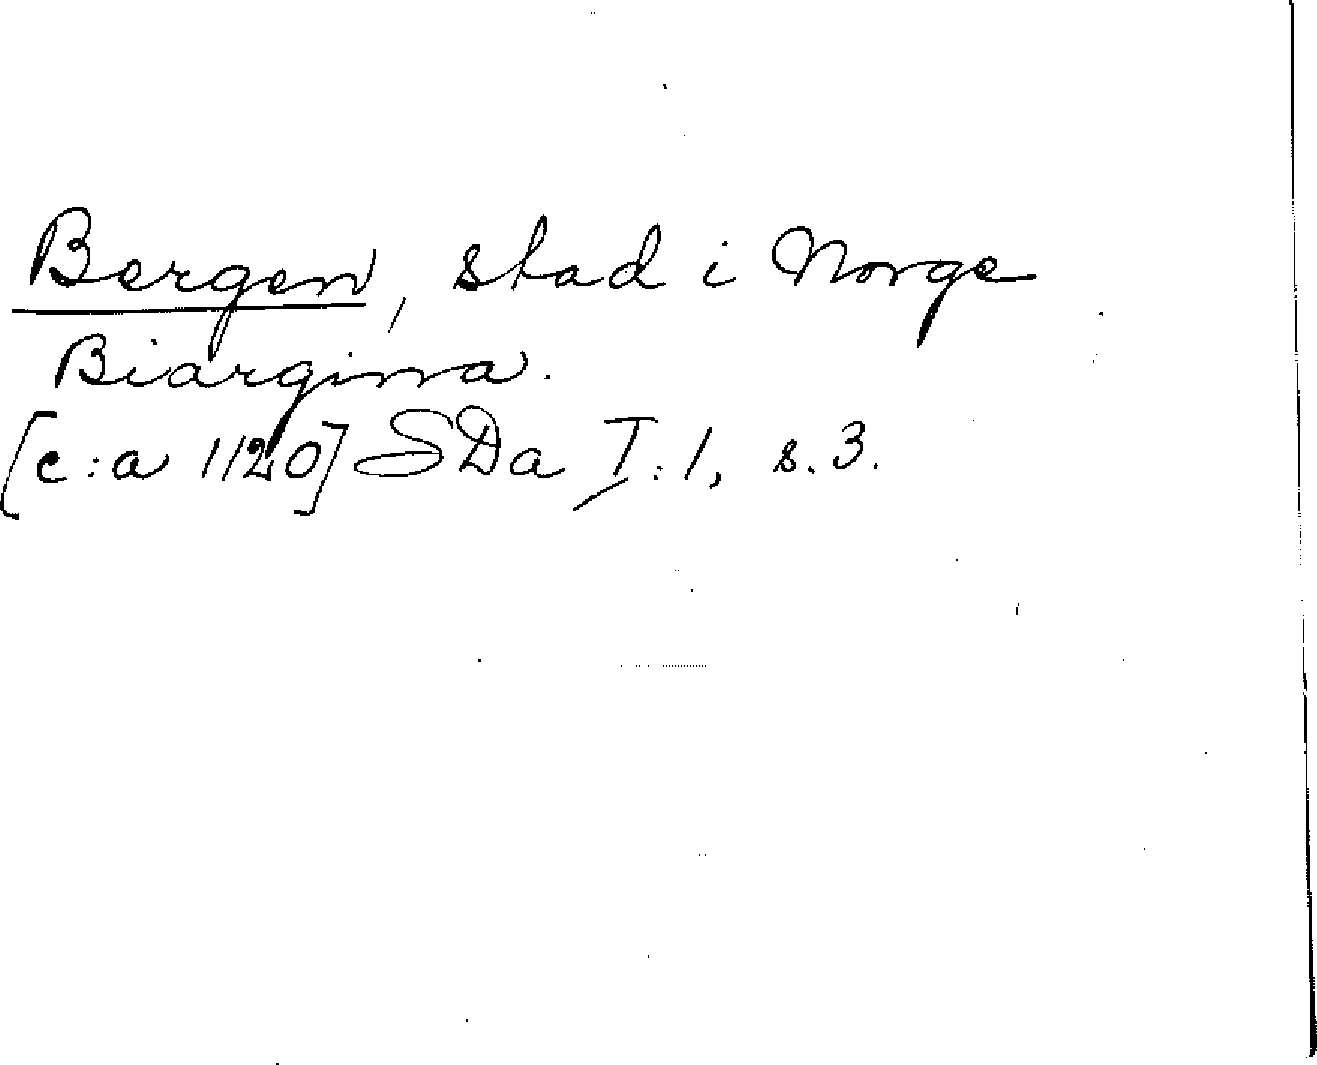 Bergen, stad i Norge
Biargina.
[c:a 1120] SDa I:1, s. 3.